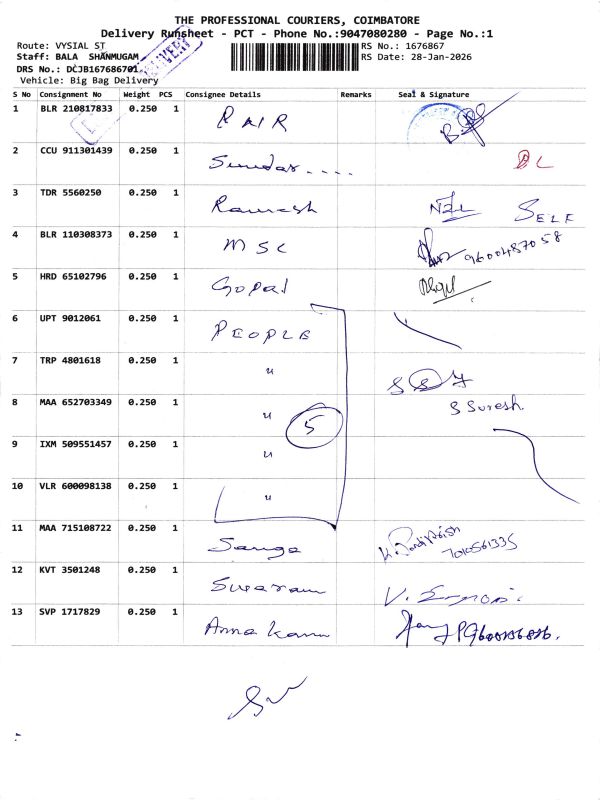 THE PROFESSIONAL COURIERS, COIMBATORE
Delivery Runsheet - PCT - Phone No.:9047080280 - Page No.:1
Route: VYSIAL ST RS No.: 1676867
Staff: BALA SHANMUGAM RS Date: 28-Jan-2026
DRS No.: DCJB167686701
Vehicle: Big Bag Delivery
S No Consignment No Weight PCS Consignee Details Remarks Seal & Signature
1 BLR 210817833 0.250 1 RAIR
2 CCU 911301439 0.250 1 Sundar.... BL
3 TDR 5560250 0.250 1 Ramesh SELF
4 BLR 110308373 0.250 1 MSC 9600487058
5 HRD 65102796 0.250 1 Gopal
6 UPT 9012061 0.250 1 PEOPLE
7 TRP 4801618 0.250 1 "
8 MAA 652703349 0.250 1 " 5 S Suresh
9 IXM 509551457 0.250 1 "
10 VLR 600098138 0.250 1 "
11 MAA 715108722 0.250 1 7010561335
12 KVT 3501248 0.250 1
13 SVP 1717829 0.250 1